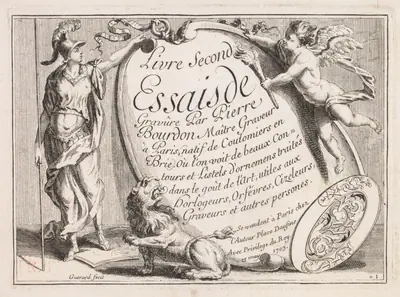 Livre Second
Essais de
Gravure Par Pierre
Bourdon Maître Graveur
à Paris, natif de Coulomiers en
Brie, Où l'on voit de beaux Con-
tours et Listels d'ornemens traités
dans le goût de l'Art, utiles aux
Horlogeurs, Orfèvres, Cizeleurs,
Graveurs et autres persones.
Se vendent à Paris chez
l'Auteur Place Daufine
Avec Privilege du Roy
1703.
Guerard fecit
1